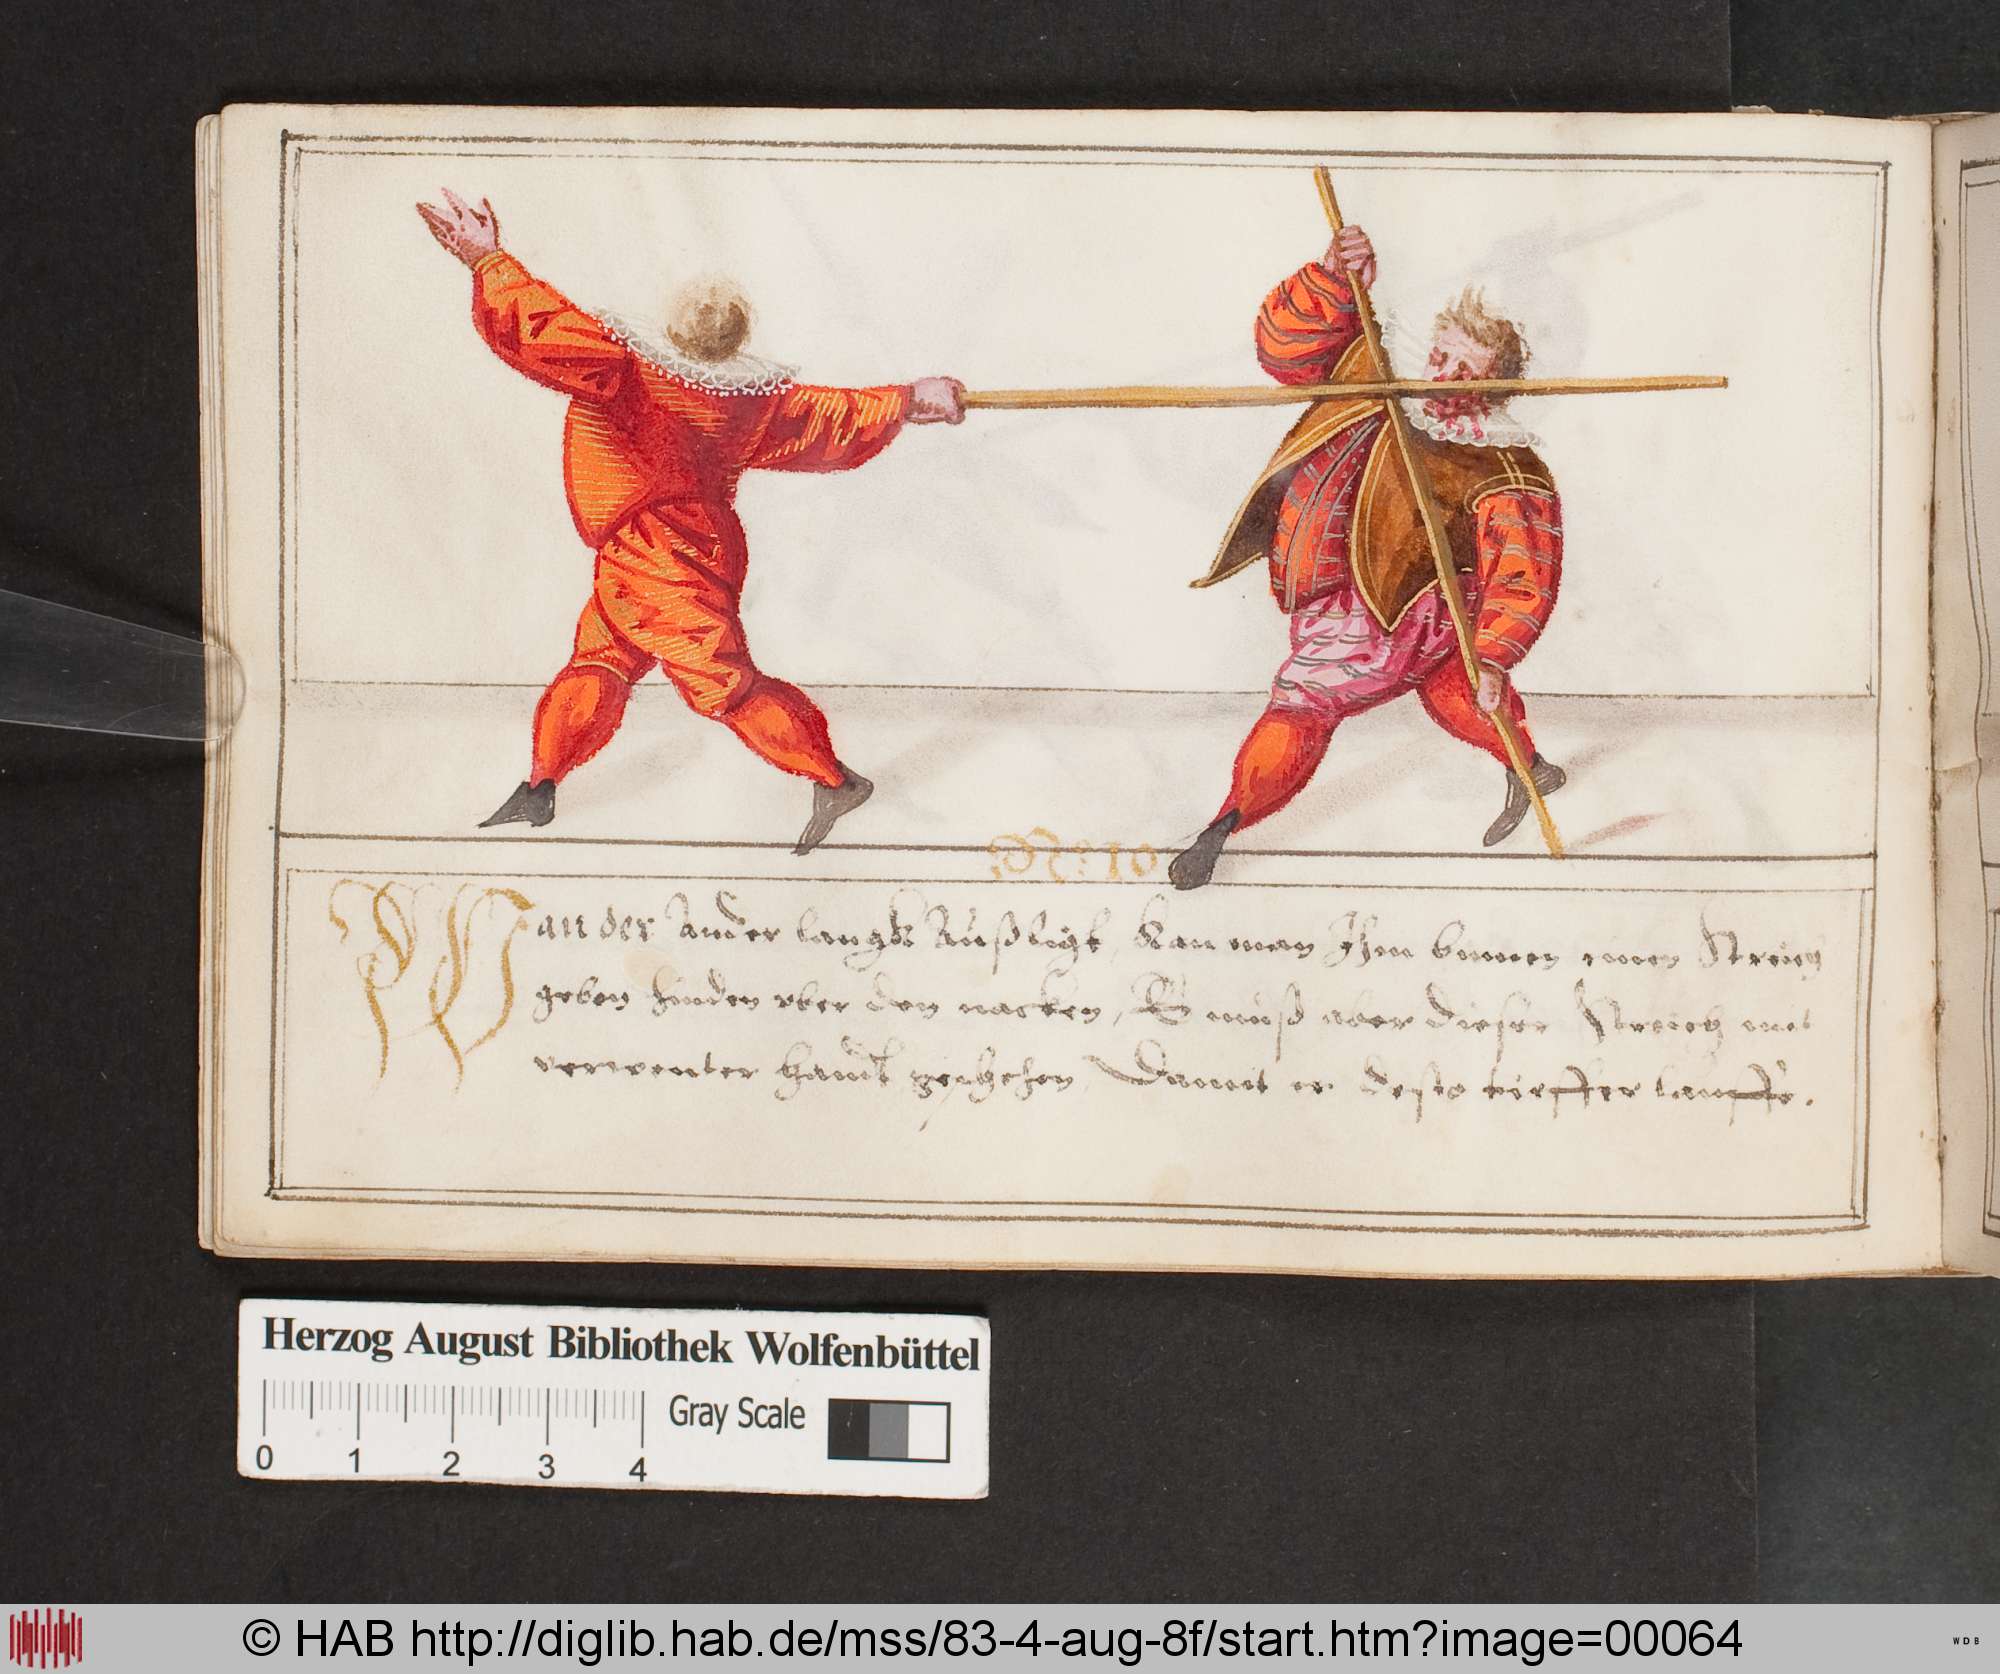 N: 10
Wan der Ander langk Außligt, Kan man Ihm binnen einen Streich
geben hinden vber den nacken, Es muß aber dieser Streich mit
verwenter handt geschehen, Damit er desto tieffer lauffe.
Herzog August Bibliothek Wolfenbüttel
Gray Scale
0 1 2 3 4
© HAB http://diglib.hab.de/mss/83-4-aug-8f/start.htm?image=00064
WDB